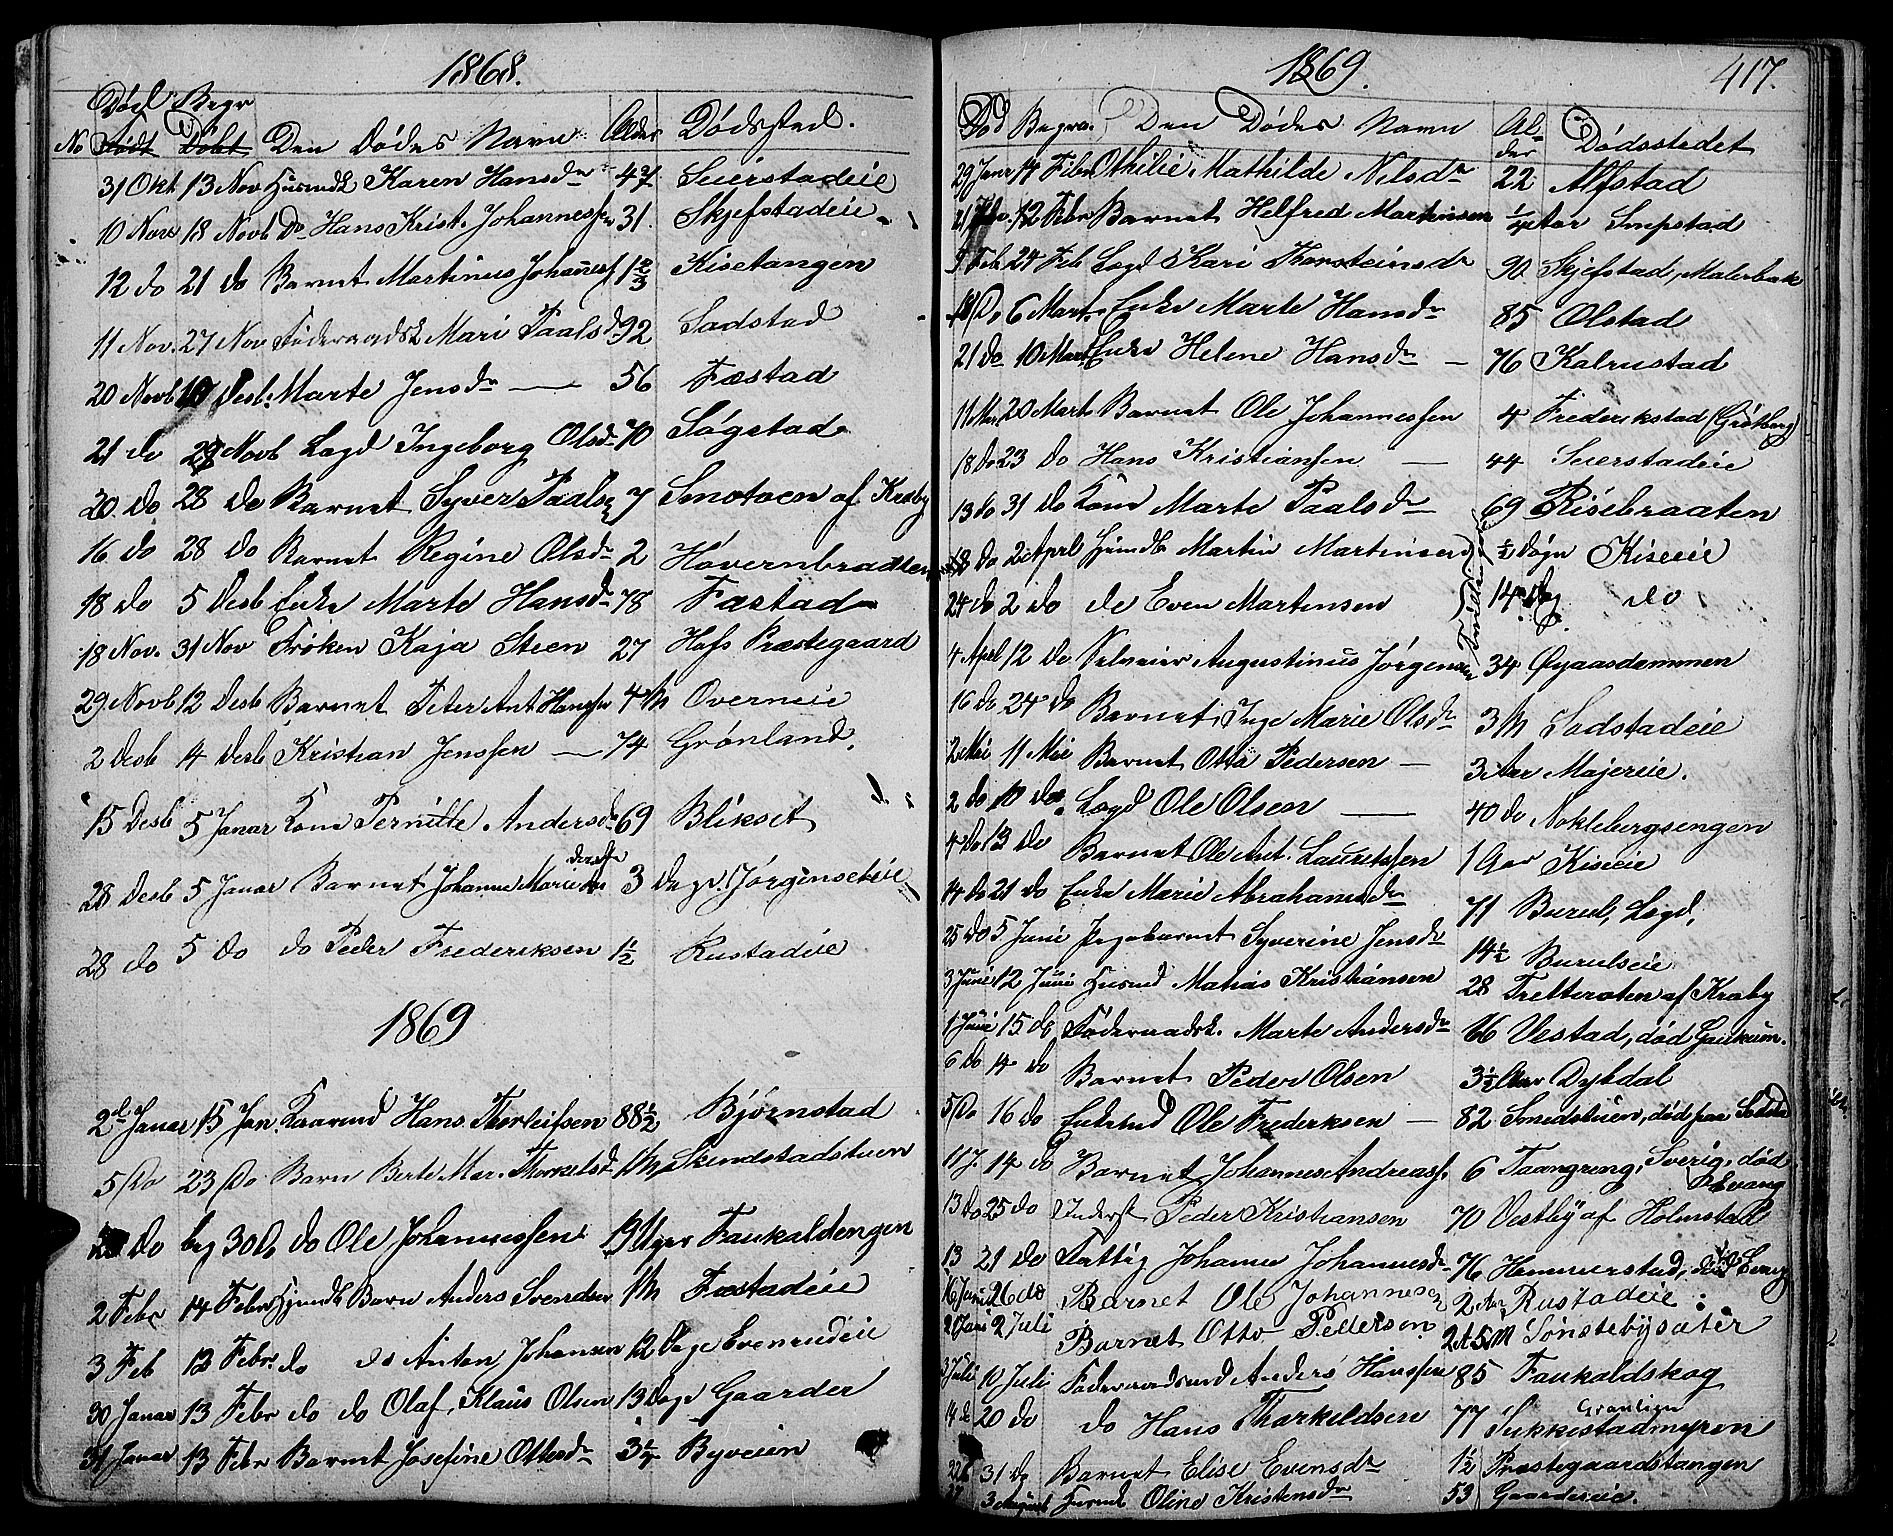 1868.
Død Begr
No Födt Döbt Den Dødes Navn Alder Dødsted.
31 Okt 13 Nov Husmdk Karen Hansdr 47 Seierstadeie
10 Nov 18 Novb Do Hans Krist. Johannessen 31. Skjefstadeie
12 do 21 do Barnet Martinus Johanness 1 2/3 Kisetangen
11 Nov. 27 Nov Föderaadsk Mari Paalsd 92 Sadstad
20 Novb 10 Desb. Marte Jensdr — 56 Fæstad
21 do 29 Novb Lægd Ingeborg Olsdr 70 Søgstad
20 do 28 do Barnet Syver Paals 7 Smotoen af Kraby
16 do 28 do Barnet Regine Olsdr 2 Hovernbraaten
18 do 5 Desb Enke Marte Hansdr 78 Fæstad
18 Nov. 31 Nov Frøken Kaja Steen 27 Hofs Præstegaard
29 Novb 12 Desb Barnet Peter Ant Hanssen 4 M Overneie
2 Desb 14 Desb Kristian Jenssen — 74 Grønland.
15 Desb 5 Janar Kone Pernille Andersdr 69 Blikset
28 Desb 5 Janar Barnet Johanne Marie 3 Dage. Jørgenseteie
28 do 5 Do do Peder Frederiksen 1½ Rustadeie
1869
2 Janar 15 Jan. Kaarmd Hans Thorleifsen 88½ Bjørnstad
5 Do 23 Do Barn Berte Mar. Thorkelsd 1 M Skindstadstuen
do beg 30 Do do Ole Johannessen 19 Uger Faukaldengen
2 Febr 14 Febr Hjemdb Barn Anders Svendsen 1 M Fæstadeie
3 Feb 12 Febr. do do Anton Johansen 12 Dage Evenrudeie
30 Janar 13 Febr do do Olaf Klaus Olsen 13 Dage Gaarder
31 Janar 13 Febr Barnet Josefine Ottesdr 3¼ Byveien
1869.
417.
Død Begra. Den Dødes Navn Alder Dødsstedet
29 Janr 14 Febr Othilie Mathilde Nilsdr 22 Alfstad
21 do. 12 Febr Barnet Helfred Martinsen ¼ Aar Smpstad
9 Feb 24 Feb Lægd Kari Thorsteinsdr 90. Skjefstad, Malerbak
18 Do 6 Mart. Enke Marte Hansdr 85 Olstad
21 do 10 Mart Enke Helene Hansdr — 76 Kalrustad
11 Mar 20 Mart Barnet Ole Johannessen 4 Frederikstad (Grötberg)
18 do 23 do Hans Kristiansen — 44 Seierstadeie
13 do 31 do Kone Marte Paalsdr 69 Risebraaten
18 do 2 April Hjemdb Martin Martinsen ½ Døgn Kiseeie
24 do 2 do do Even Martensen 14 Dag do
4 April 12 do Selveier Augustinus Jørgensen 34 Øyaasdammen
16 do 24 do Barnet Inge Marie Olsdr 3 M Sadstadeie
2 Mai 11 Mai Barnet Otto Pedersen — 3 Aar Majereie.
2 do 10 do Lægd Ole Olsen — 40 do Noklebergsengen
4 Do 13 do Barnet Ole Ant. Lauritssen 1 Aar Kiseeie
14 do 21 do Enke Marie Abrahamsdr 71 Burul, Lægd,
25 do 5 Juni Pigebarnet Syverine Jensdr 14½ Burulseie
3 Juni 12 Juni Husmd Mathias Kristiansen 28 Tretteroten af Kraby
1 Juni 15 do Föderaadsk. Marte Andersdr 66 Vestad, död Gaukum.
6 do 14 do Barnet Peder Olsen 3½ Aar Dybdal
5 Do 16 do Enkemd Ole Frederksen — 82 Smedstuen, död paa
11 J. 14 do Barnet Johannes Andreass. 6 Taangreng, Sverig, död Evang
13 Do 25 do Inderst Peder Kristiansen 70 Vestby af Holmstad
13 21 do Fattig Johanne Johannesdr 76 Hammerstad, död Evang
16 Juni 26 do Barnet Ole Johannesen 2 Aar Rustadeie
20 Juni 2 Juli Barnet Otto Pedersen 2 A 5 M Sønstebysäter
3 Juli 10 Juli Föderaadsmd Anders Hanssen 85 Faukaldskog
14 do 20 do do Hans Tharkeldsen 77 Sukkestadmyren
Granlien
22 31 do Barnet Elise Evensdr 1½ Præstegaardstangen
27 3 August Oline Kristensdr 53 Gaarderseie.